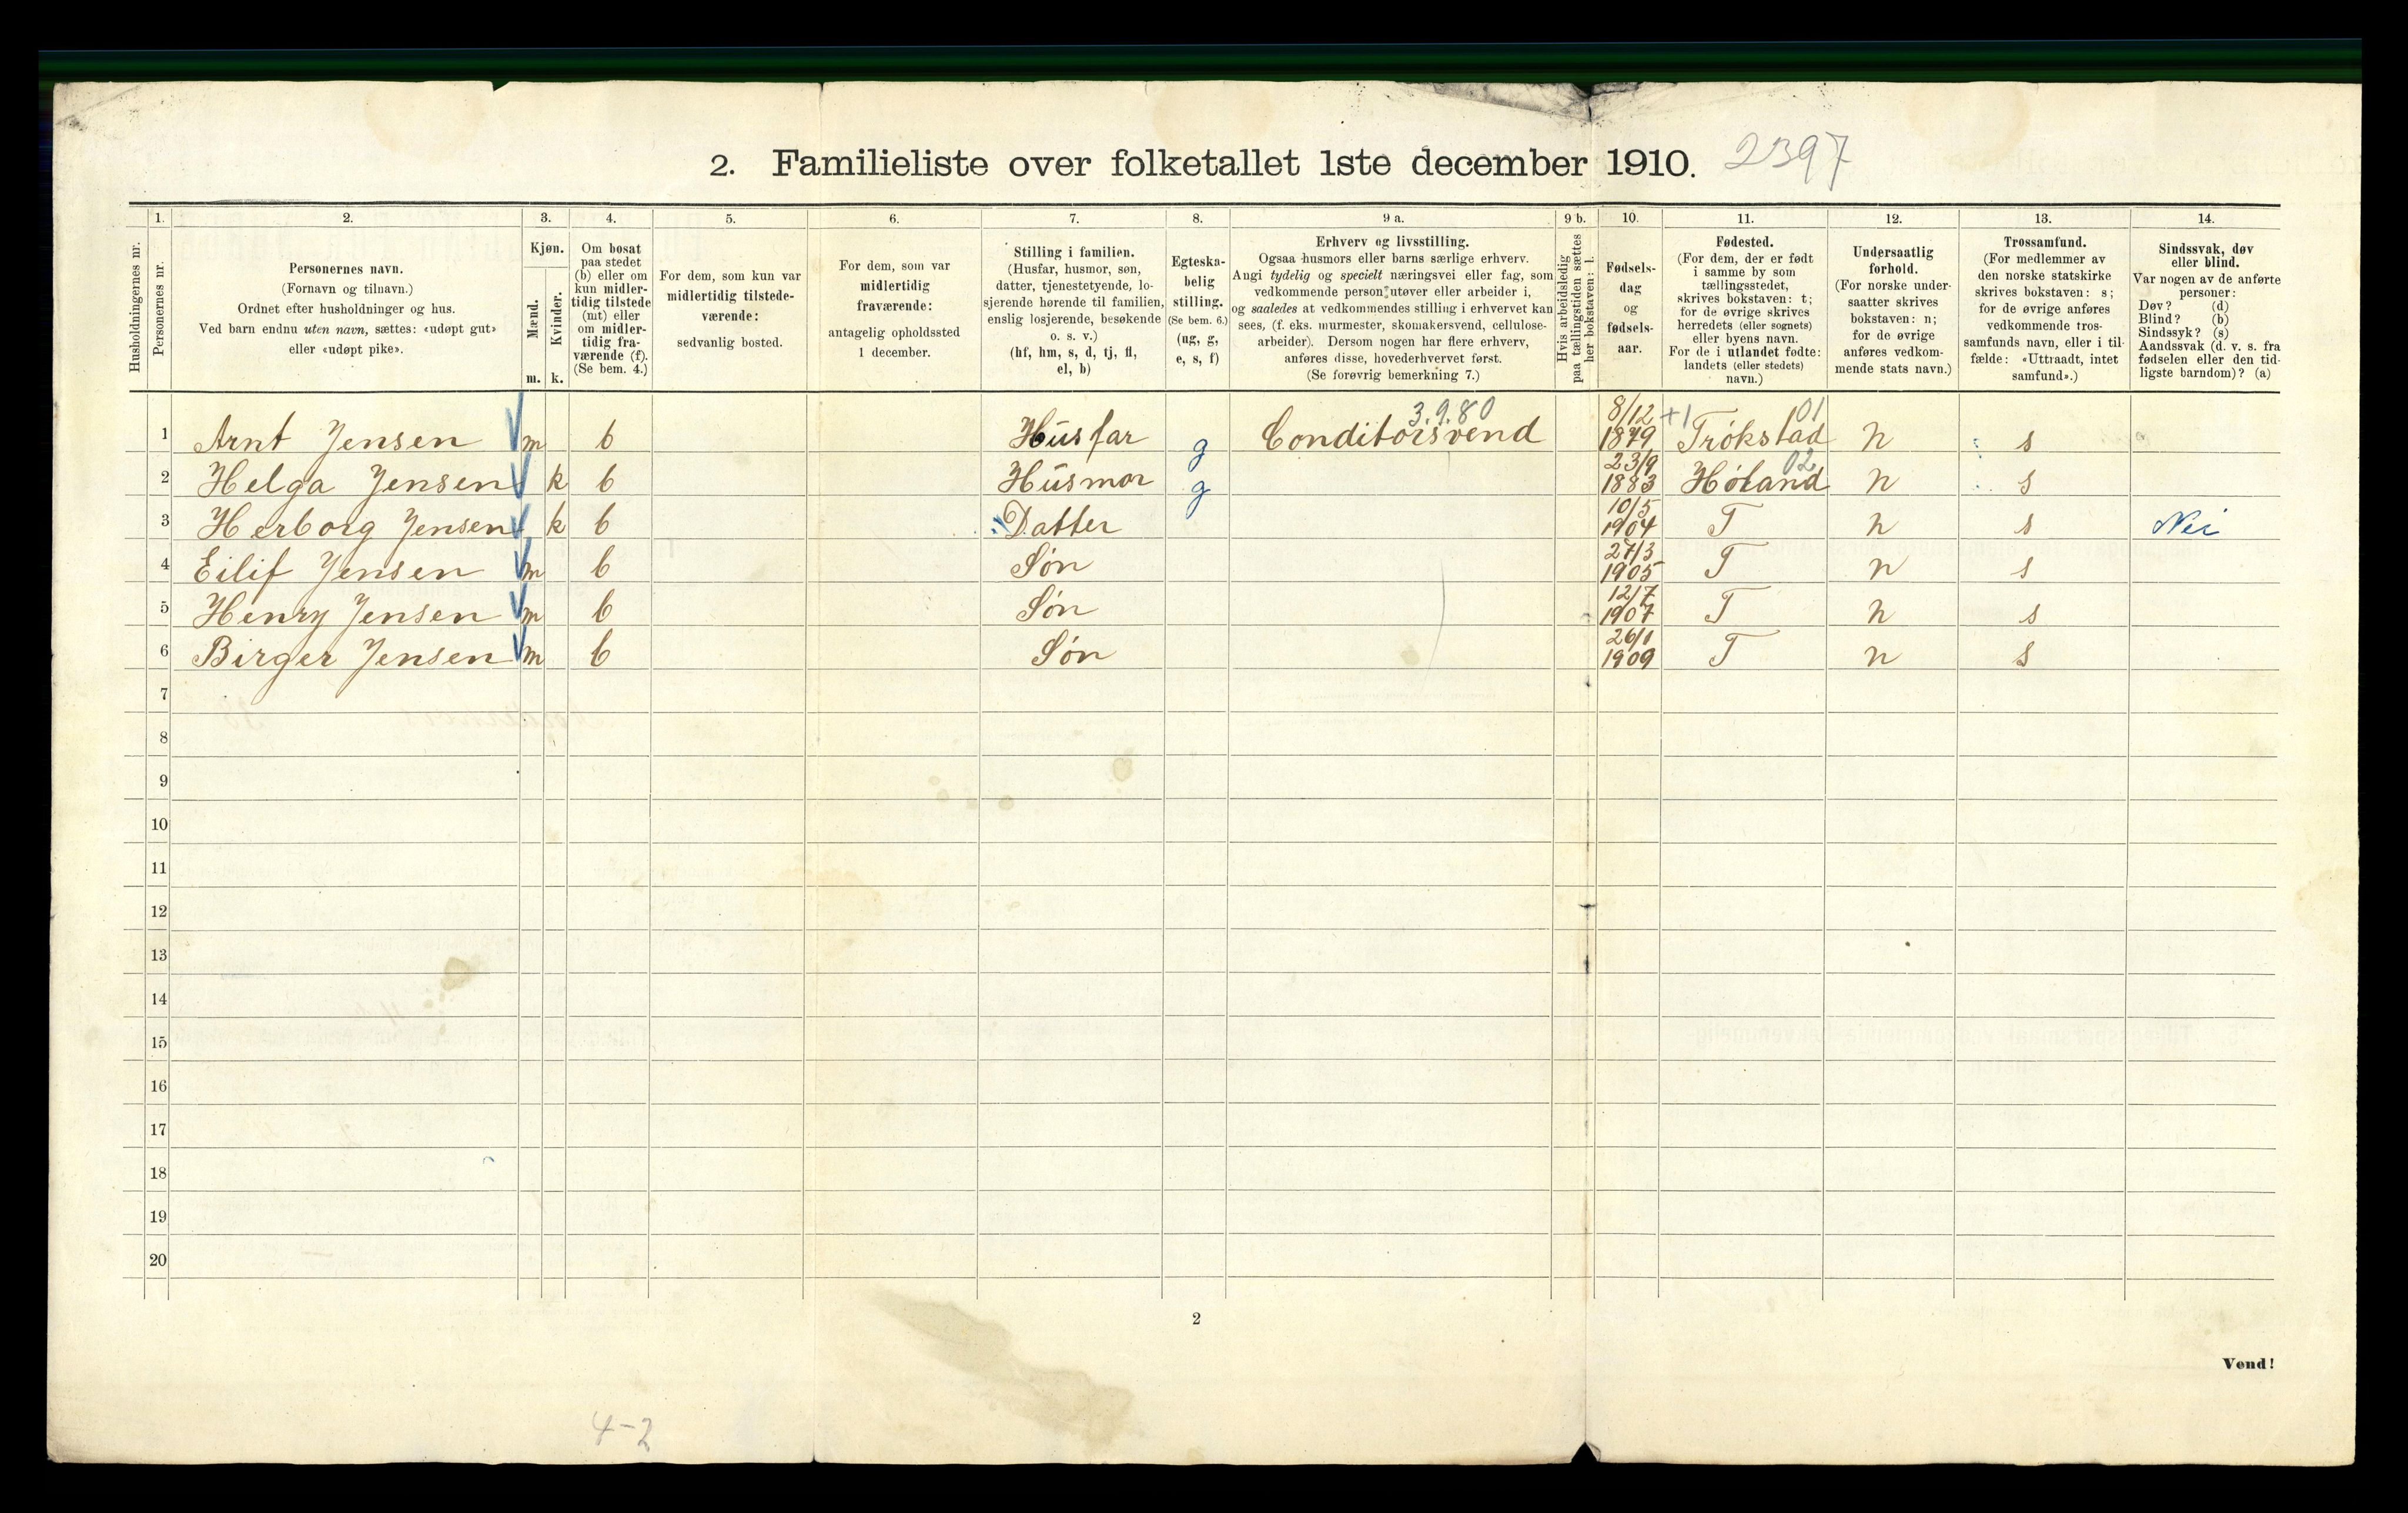 2. Familieliste over folketallet 1ste december 1910. 2397
1. 2. 3. 4. 5. 6. 7. 8. 9 a. 9 b. 10. 11. 12. 13. 14.
Husholdningernes nr.
Personernes nr.
Personernes navn.
(Fornavn og tilnavn.)
Ordnet efter husholdninger og hus.
Ved barn endnu uten navn, sættes: «udøpt gut»
eller «udøpt pike».
Kjøn.
Mænd.
Kvinder.
m. k.
Om bosat
paa stedet
(b) eller om
kun midler-
tidig tilstede
(mt) eller
om midler-
tidig fra-
værende (f).
(Se bem. 4.)
For dem, som kun var
midlertidig tilstede-
værende:
sedvanlig bosted.
For dem, som var
midlertidig
fraværende:
antagelig opholdssted
1 december.
Stilling i familien.
(Husfar, husmor, søn,
datter, tjenestetyende, lo-
sjerende hørende til familien,
enslig losjerende, besøkende
o. s. v.)
(hf, hm, s, d, tj, fl,
el, b)
Egteska-
belig
stilling.
(Se bem. 6.)
(ug, g,
e, s, f)
Erhverv og livsstilling.
Ogsaa husmors eller barns særlige erhverv.
Angi tydelig og specielt næringsvei eller fag, som
vedkommende person utøver eller arbeider i,
og saaledes at vedkommendes stilling i erhvervet kan
sees, (f. eks. murmester, skomakersvend, cellulose-
arbeider). Dersom nogen har flere erhverv,
anføres disse, hovederhvervet først.
(Se forøvrig bemerkning 7.)
Hvis arbeidsledig
paa tællingstiden sættes
her bokstaven: l.
Fødsels-
dag
og
fødsels-
aar.
Fødested.
(For dem, der er født
i samme by som
tællingsstedet,
skrives bokstaven: t;
for de øvrige skrives
herredets (eller sognets)
eller byens navn.
For de i utlandet fødte:
landets (eller stedets)
navn.)
Undersaatlig
forhold.
(For norske under-
saatter skrives
bokstaven: n;
for de øvrige
anføres vedkom-
mende stats navn.)
Trossamfund.
(For medlemmer av
den norske statskirke
skrives bokstaven: s;
for de øvrige anføres
vedkommende tros-
samfunds navn, eller i til-
fælde: «Uttraadt, intet
samfund».)
Sindssvak, døv
eller blind.
Var nogen av de anførte
personer:
Døv? (d)
Blind? (b)
Sindssyk? (s)
Aandssvak (d. v. s. fra
fødselen eller den tid-
ligste barndom)? (a)
3.9.80 8/12 +1 01
1 Arnt Jensen m b Husfar g Conditorsvend 1879 Trøkstad n s
23/9 02
2 Helga Jensen k b Husmor g 1883 Høland n s
10/5
3 Herborg Jensen k b Datter 1904 T n s Nei
27/3
4 Eilif Jensen m b Søn 1905 T n s
12/7
5 Henry Jensen m b Søn 1907 T n s
26/1
6 Birger Jensen m b Søn 1909 T n s
7
8
9
10
11
12
13
14
15
16
17
18
19
20
2
Vend!
4-2